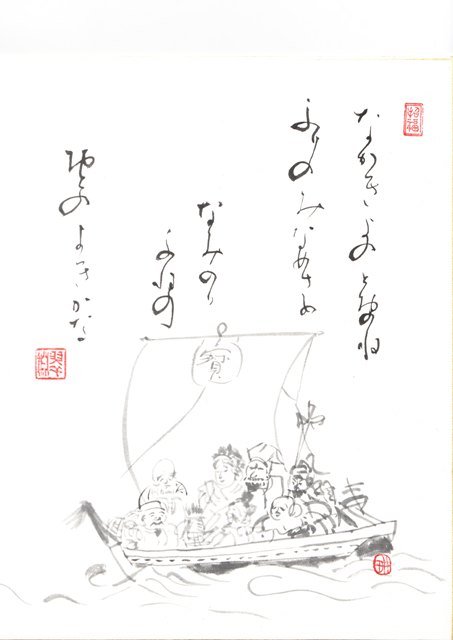 招福
なかきよのとをのね
ふりのみなめさめ
なみのり
ふねの
おとのよきかな